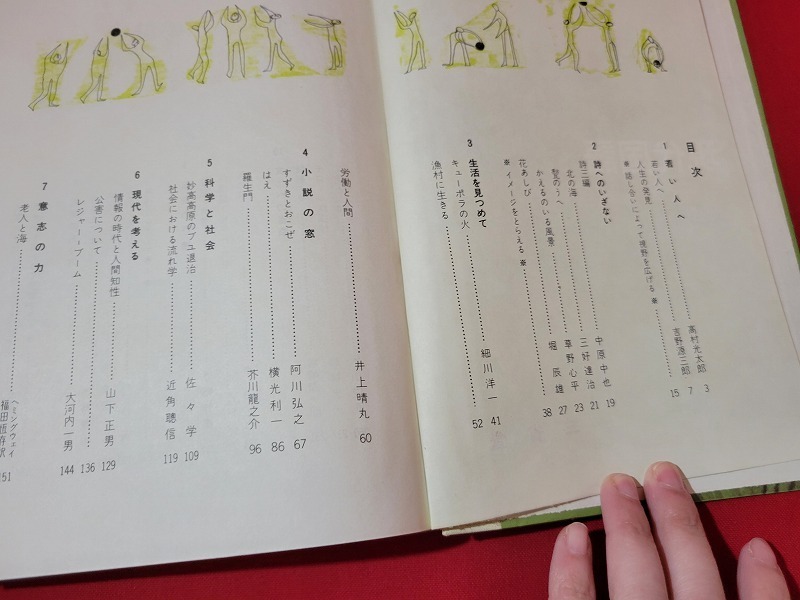 目次
1 若い人へ
若い人へ……高村光太郎 3
人生の発見……吉野源三郎 7
※話し合いによって視野を広げる※……15
2 詩へのいざない
詩三編
北の海……中原中也 19
甃のうへ……三好達治 21
かえるのいる風景……草野心平 23
花あしび……堀辰雄 27
※イメージをとらえる※……38
3 生活を見つめて
キューポラの火……細川洋一 41
漁村に生きる……52
労働と人間……井上晴丸 60
4 小説の窓
すずきとおこぜ……阿川弘之 67
はえ……横光利一 86
羅生門……芥川龍之介 96
5 科学と社会
妙高高原のブユ退治……佐々学 109
社会における流れ学……近角聴信 119
6 現代を考える
情報の時代と人間知性……山下正男 129
公害について……136
レジャー・ブーム……大河内一男 144
7 意志の力
老人と海……ヘミングウェイ 福田恆存訳 151